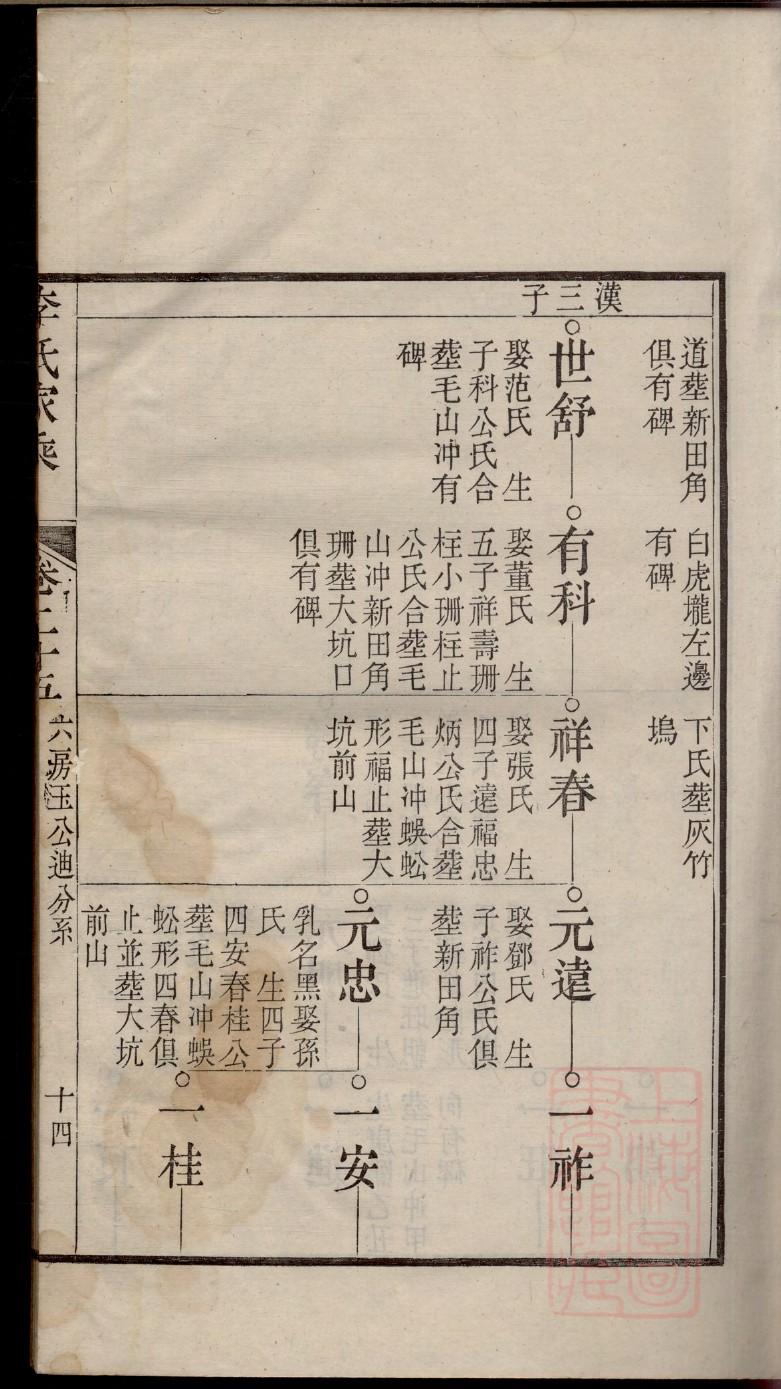 漢三子
道塟新田角
俱有碑
白虎壠左邊
有碑
下氏塟灰竹
塢
世舒
娶范氏　生
子科公氏合
塟毛山冲有
碑
有科
娶董氏　生
五子祥壽珊
枉小珊枉止
公氏合塟毛
山冲新田角
珊塟大坑口
俱有碑
祥春
娶張氏　生
四子遠福忠
炳公氏合塟
毛山冲蜈蚣
形福止塟大
坑前山
元遠
娶鄧氏　生
子祚公氏俱
塟新田角
一祚
元忠
乳名黑娶孫
氏　生四子
四安春桂公
塟毛山冲蜈
蚣形四春俱
止並塟大坑
前山
一安
一桂
李氏家乘
卷二十五
六房玉公迪分系
十四
上海圖書館藏